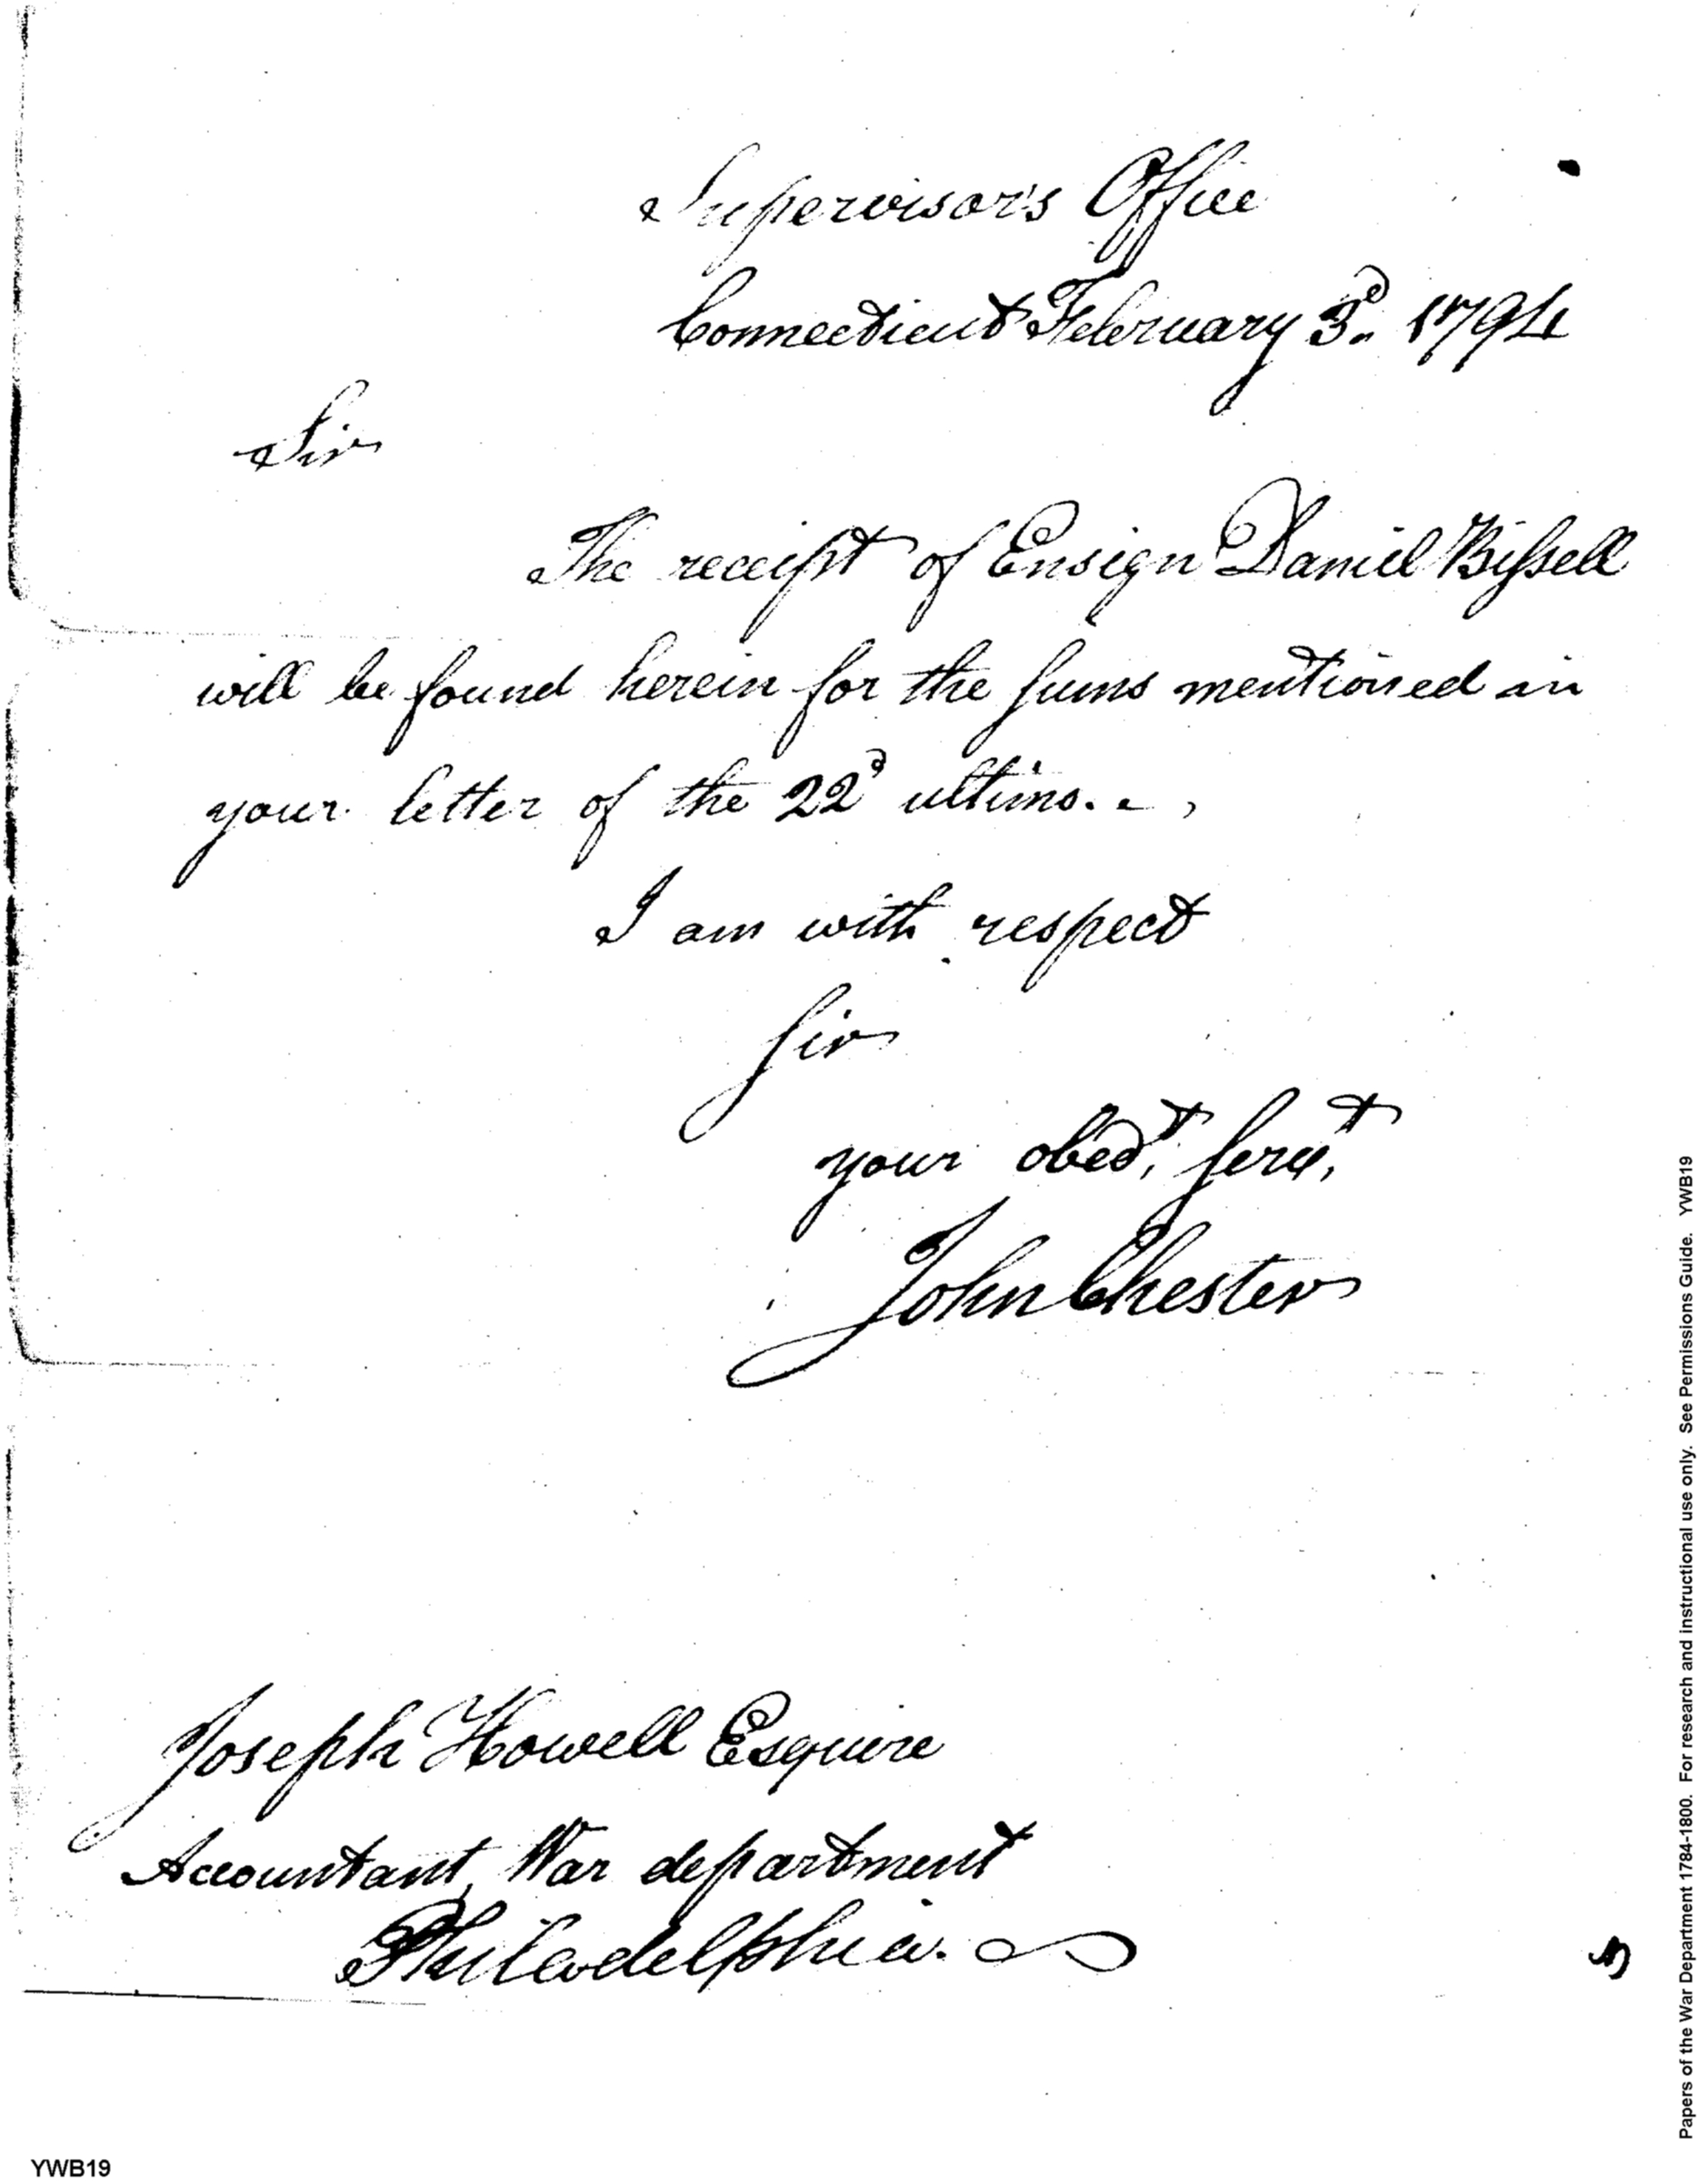 Supervisor's Office
Connecticut February 3d. 1794
Sir
The receipt of Ensign Daniel Bissell
will be found herein for the sums mentioned in
your letter of the 22d ultimo. -,
I am with respect
Sir
your obedt, servt,
John Chester
Joseph Howell Esquire
Accountant, War department
Philadelphia.
Papers of the War Department 1784-1800. For research and instructional use only. See Permissions Guide. YWB19
YWB19